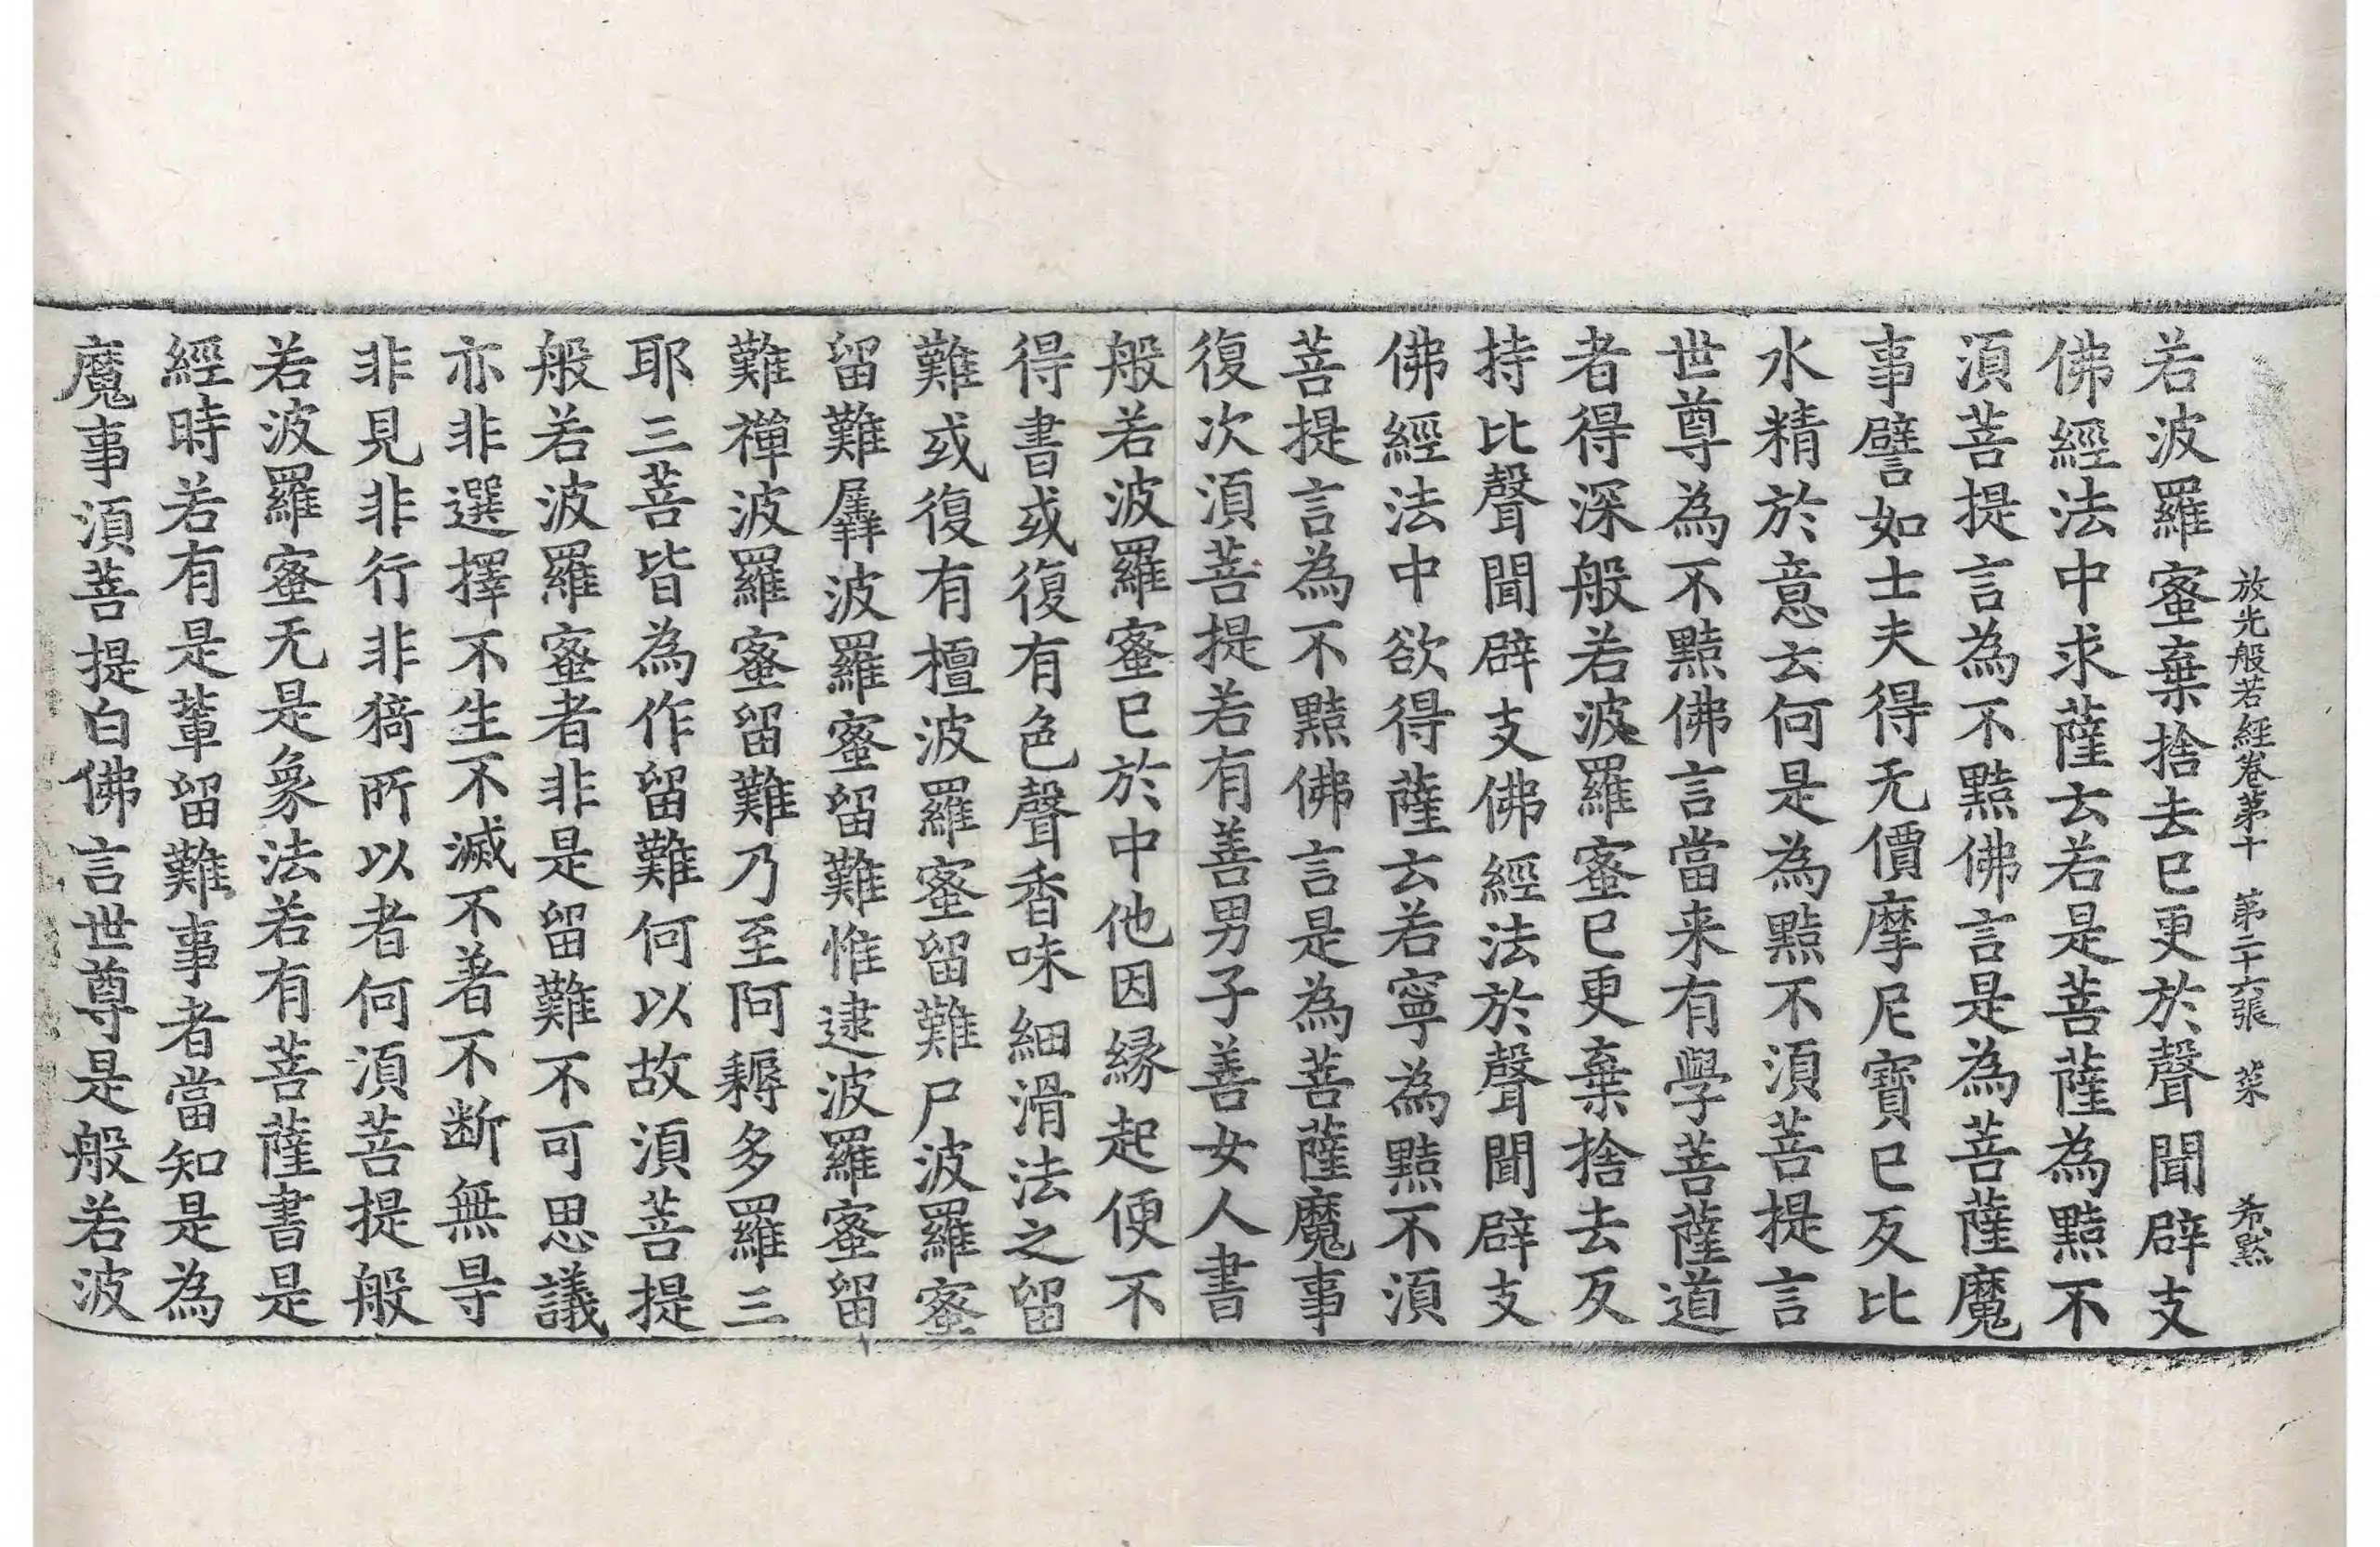 放光般若經卷第十　第二十六張　菜　希黙
若波羅蜜棄捨去已更於聲聞辟支
佛經法中求薩云若是菩薩為黠不
須菩提言為不黠佛言是為菩薩魔
事譬如士夫得无價摩尼寶已反比
水精於意云何是為黠不須菩提言
世尊為不黠佛言當来有學菩薩道
者得深般若波羅蜜已更棄捨去反
持比聲聞辟支佛經法於聲聞辟支
佛經法中欲得薩云若寧為黠不須
菩提言為不黠佛言是為菩薩魔事
復次須菩提若有善男子善女人書
般若波羅蜜已於中他因緣起便不
得書或復有色聲香味細滑法之留
難或復有檀波羅蜜留難尸波羅蜜
留難羼波羅蜜留難惟逮波羅蜜留
難禪波羅蜜留難乃至阿耨多羅三
耶三菩皆為作留難何以故須菩提
般若波羅蜜者非是留難不可思議
亦非選擇不生不滅不著不断無㝵
非見非行非猗所以者何須菩提般
若波羅蜜无是象法若有菩薩書是
經時若有是輩留難事者當知是為
魔事須菩提白佛言世尊是般若波